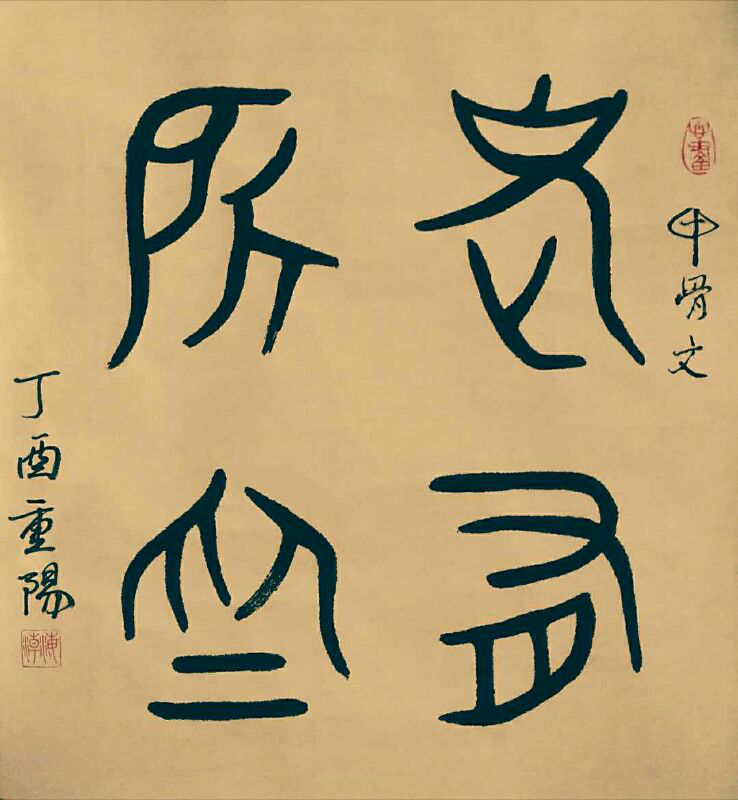 甲骨文
老有
所
丁酉重陽